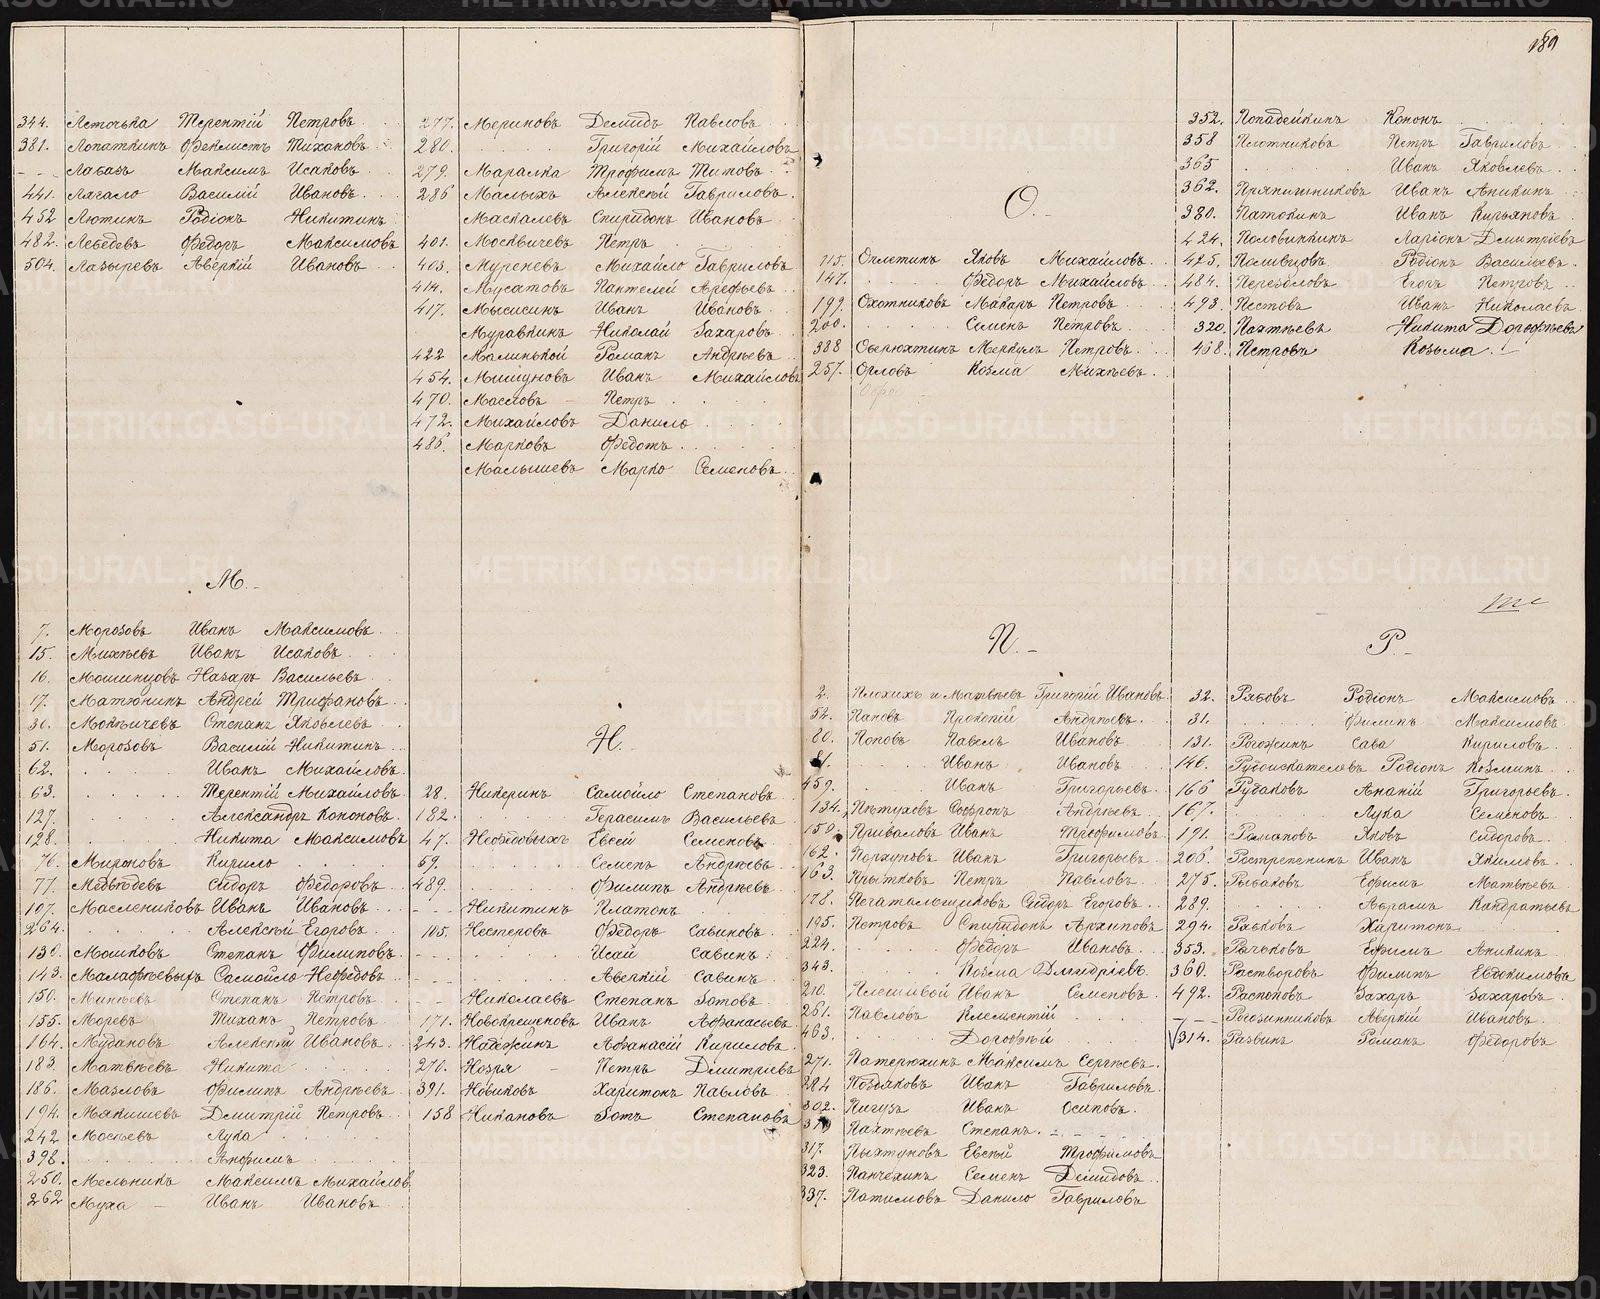 189
344. Ласточка Терентій Петровъ
381. Лопаткинъ Феклистъ Тихановъ
Лабазъ Максимъ Исаковъ
441. Лагало Василій Ивановъ
452 Лютинъ Родіонъ Никитинъ
482. Лебедевъ Федоръ Максимовъ
504. Лазыревъ Аверкій Ивановъ
М.
7. Морозовъ Иванъ Максимовъ
15. Михѣевъ Иванъ Исаковъ
16. Мошинцовъ Назаръ Васильевъ
17. Матюнинъ Андрей Трифановъ
30. Мокѣичевъ Степанъ Яковлевъ
51. Морозовъ Василій Никитинъ
62. Иванъ Михайловъ
63. Терентій Михайловъ
127. Александръ Кононовъ
128. Никита Максимовъ
76. Мироновъ Кирило
77. Медвѣдевъ Сидоръ Федоровъ
107. Маслениковъ Иванъ Ивановъ
264. Алексѣй Егоровъ
130. Мошковъ Степанъ Филиповъ
143. Малафѣевыхъ Самойло Нефедовъ
150. Минѣевъ Степанъ Петровъ
155. Моревъ Тиханъ Петровъ
164. Мудановъ Алексѣй Ивановъ
183. Матвѣевъ Никита
186. Мазловъ Филипъ Андрѣевъ
194. Мякишевъ Дмитрій Петровъ
242 Мосѣевъ Лука
398. Анфимъ
250. Мельникъ Максимъ Михайлов
262 Муха Иванъ Ивановъ
277. Мериновъ Демидъ Павловъ
280. Григорій Михайловъ
279. Маралка Трофимъ Титовъ
286 Малыхъ Алексѣй Гавриловъ
Маскалевъ Спиридонъ Ивановъ
401. Москвичевъ Петръ
403. Муреневъ Михайло Гавриловъ
414. Мусатовъ Пантелей Арефьевъ
417. Мысисинъ Иванъ Ивановъ
Муравкинъ Николай Захаровъ
422 Малинькой Романъ Андрѣевъ
454. Мишуновъ Иванъ Михайловъ
470. Масловъ Петръ
472. Михайловъ Данило
486. Марковъ Федотъ
Малышевъ Марко Семеновъ
Н.
28. Никеринъ Самойло Степановъ
182. Герасимъ Васильевъ
47. Нефедовыхъ Евсей Семеновъ
69. Семенъ Андрѣевъ
489. Филипъ Андрѣевъ
Никитинъ Платонъ
105. Нестеровъ Федоръ Савиновъ
Исай Савинъ
Аверкій Савинъ
Николаевъ Степанъ Зотовъ
171. Новокрещеновъ Иванъ Афанасьевъ
243. Наджинъ Афанасій Кириловъ
270. Нозря Петръ Дмитріевъ
391. Новиковъ Харитонъ Павловъ
158 Никановъ Зотъ Степановъ
О.
115. Оплетинъ Яковъ Михайловъ
147. Федоръ Михайловъ
199. Охотниковъ Макаръ Петровъ
200. Семенъ Петровъ
388 Оберюхтинъ Меркулъ Петровъ
257. Орловъ Козма Михѣевъ
П.
2. Плохихъ и Матвѣевъ Григорій Ивановъ
52. Пановъ Прокопій Андрѣевъ
80. Поповъ Павелъ Ивановъ
81. Иванъ Ивановъ
459. Иванъ Григорьевъ
134. Пѣтуховъ Софронъ Андрѣевъ
150. Приваловъ Иванъ Трофимовъ
162. Порхуновъ Иванъ Григорьевъ
163. Крытковъ Петръ Павловъ
178. Печатальщиковъ Сидоръ Егоровъ
195. Петровъ Спиридонъ Архиповъ
224. Федоръ Ивановъ
343. Козма Дмитріевъ
210. Плешивой Иванъ Семеновъ
261. Павловъ Клементій
463. Дорофѣй
271. Патерюхинъ Максимъ Сергѣевъ
284 Поздяковъ Иванъ Гавриловъ
302. Пигузъ Иванъ Осиповъ
Пахтѣевъ Степанъ
317. Пыхтуновъ Евсѣй Трофимовъ
323. Панчехинъ Семенъ Демидовъ
337. Патимовъ Данило Гавриловъ
352. Попадейкинъ Кононъ
358 Плотниковъ Петръ Гавриловъ
365 Иванъ Яковлевъ
362. Пряпишниковъ Иванъ Аникинъ
380. Патокинъ Иванъ Кирьяновъ
424. Половинкинъ Ларіонъ Дмитріевъ
425. Поливцовъ Родіонъ Васильевъ
484. Перездловъ Егоръ Петровъ
493. Пестовъ Иванъ Николаевъ
320. Пахтѣевъ Никита Дорофѣевъ
468. Петровъ Козьма
Р.
32. Рябовъ Родіонъ Максимовъ
31. Филипъ Максимовъ
131. Рогожинъ Сава Кириловъ
146. Рудоискателевъ Родіонъ Козминъ
166 Рудаковъ Ананій Григорьевъ
167. Лука Семеновъ
191. Романовъ Яковъ Сидоровъ
206. Ростропенинъ Иванъ Якимовъ
275. Рыбаковъ Ефимъ Матвѣевъ
289. Аврамъ Кандратьевъ
294. Ряковъ Харитонъ
353. Рычковъ Ефимъ Аникинъ
360. Растворовъ Филипъ Евдокимовъ
492. Распоповъ Захаръ Захаровъ
Рогозинниковъ Аверкій Ивановъ
314. Развинъ Романъ Федоровъ
METRIKI.GASO-URAL.RU